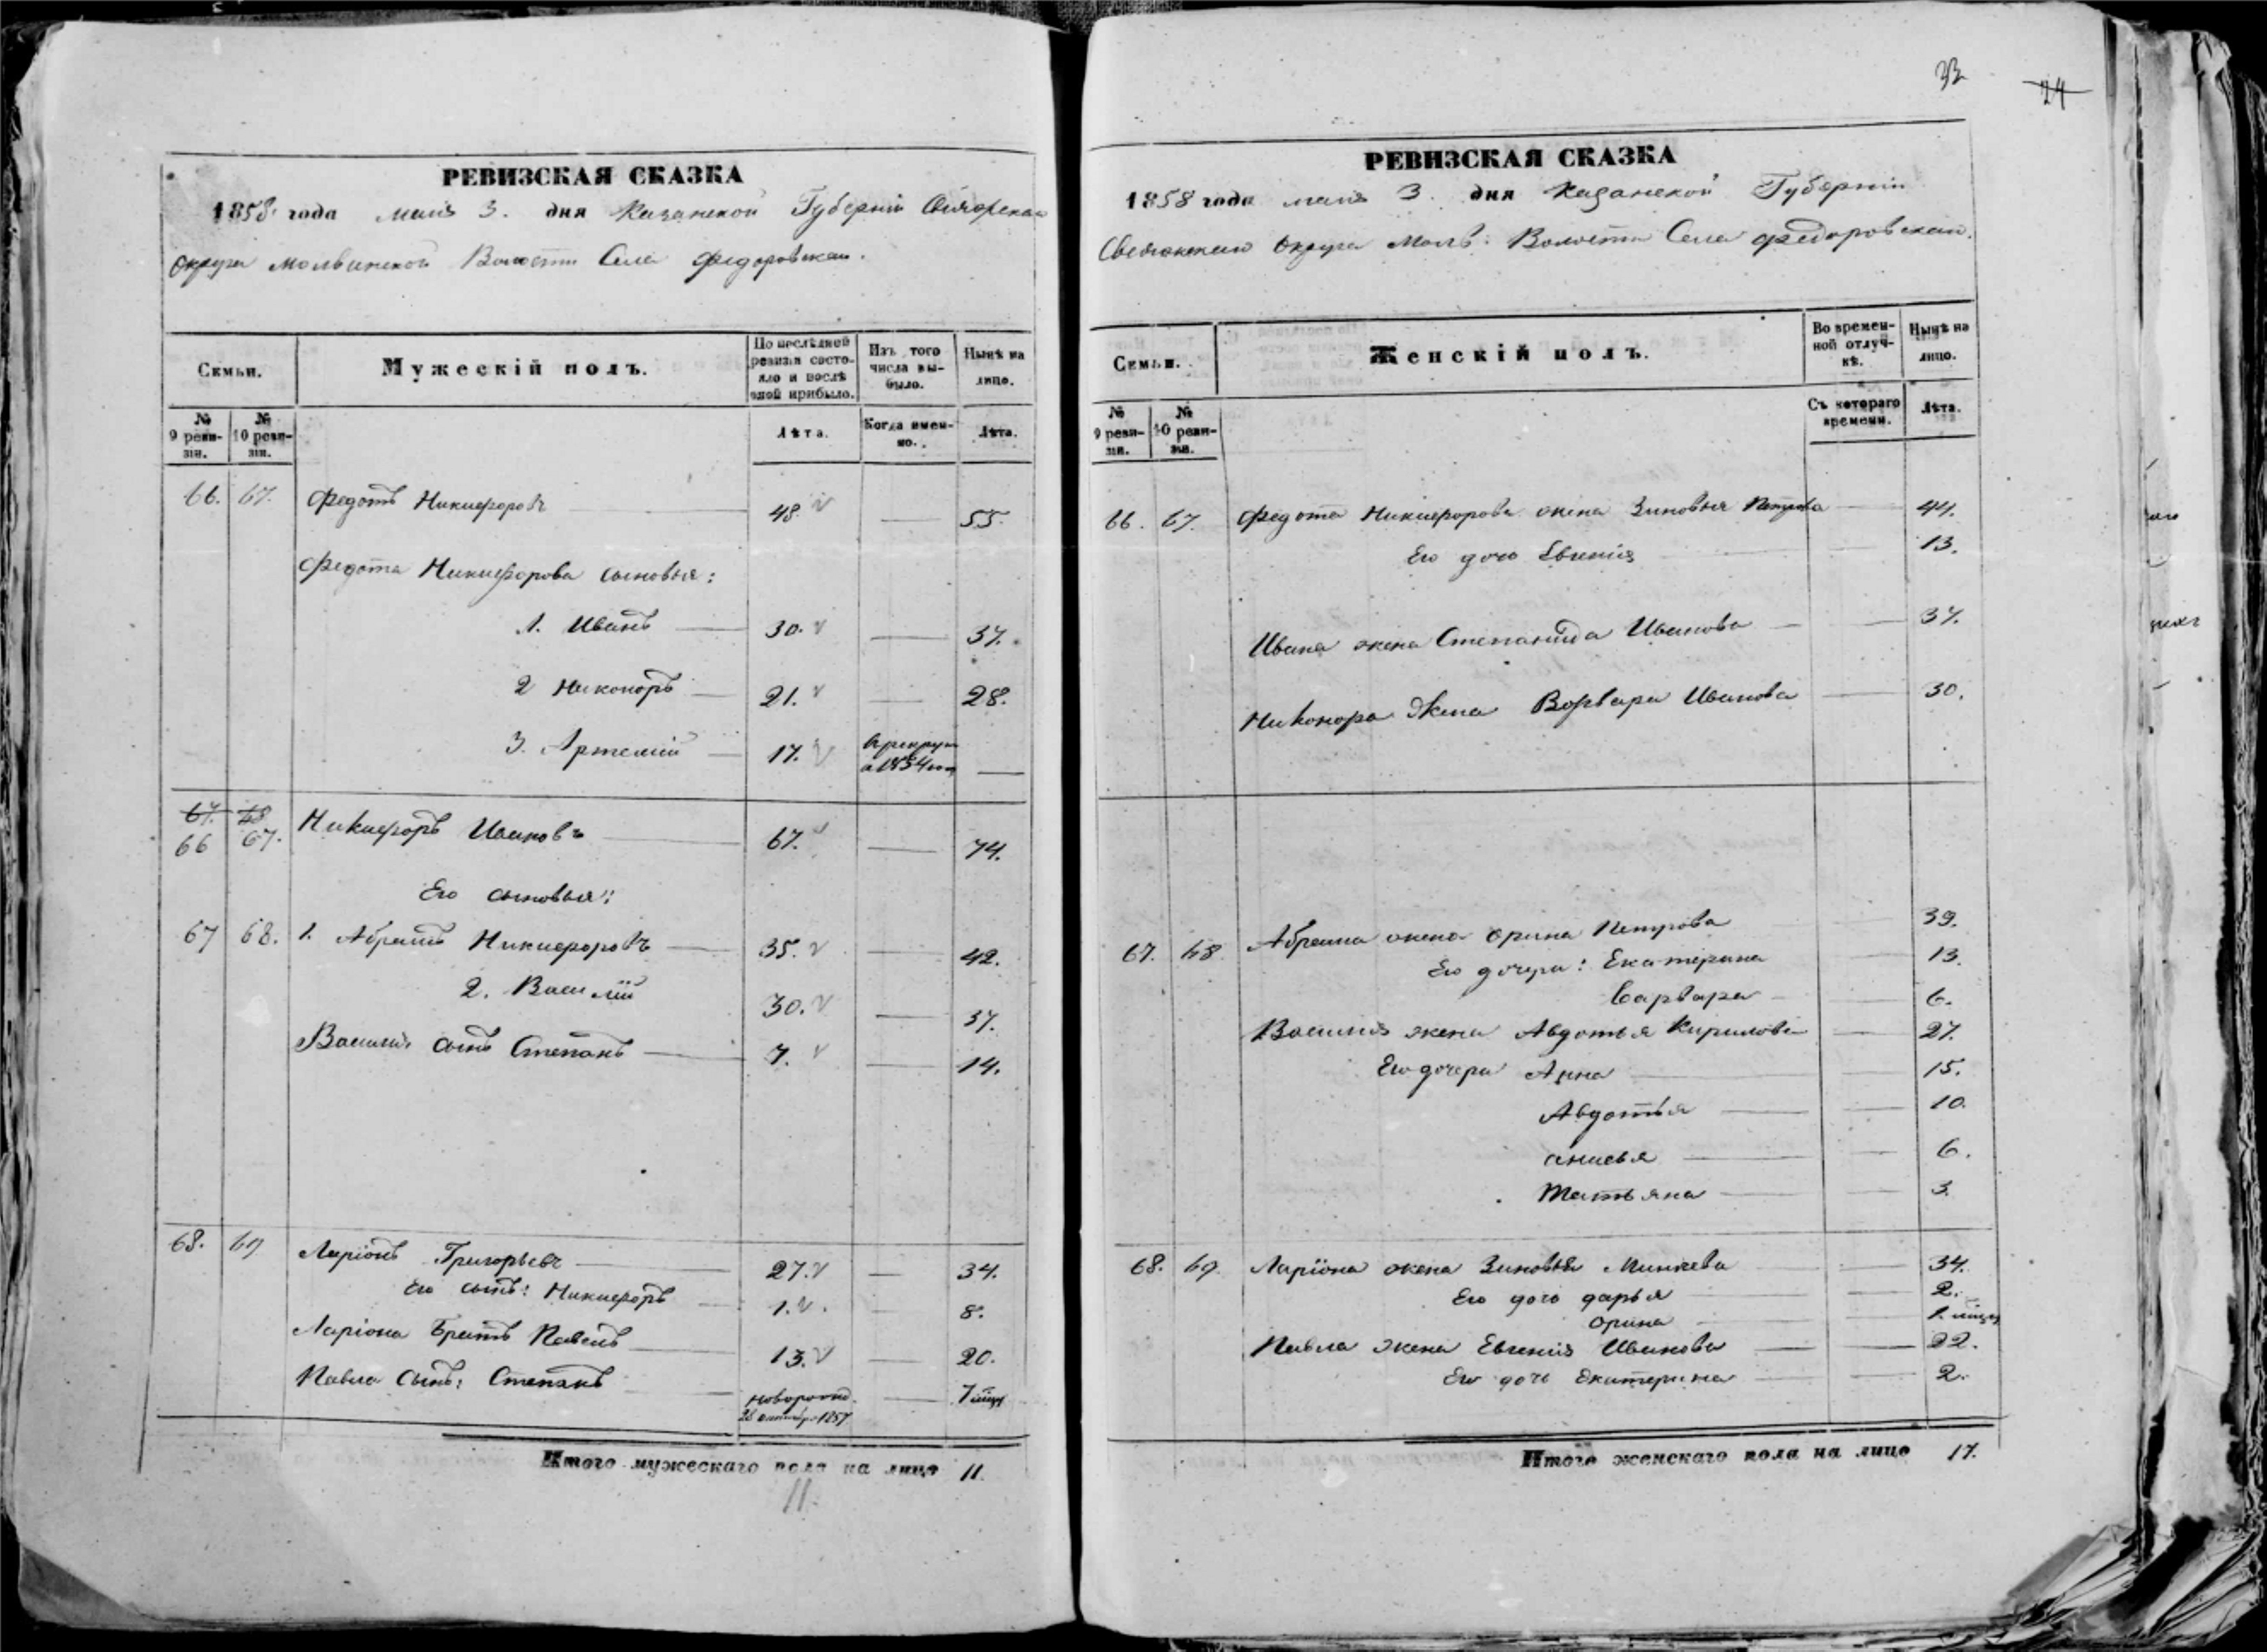 33
24
РЕВИЗСКАЯ СКАЗКА
1858 года мaiя 3. дня Казанской Губерніи Свіяжскаго
округа Молвинской Волости Села Федоровскаго.
Семьи.
Мужескій полъ.
По послѣдней ревизіи состояло и послѣ оной прибыло.
Изъ того числа выбыло.
Нынѣ на лицо.
№ 9 ревизіи.
№ 10 ревизіи.
Лѣта.
Когда именно.
Лѣта.
66. 67. Федотъ Никифоровъ 48. 55.
Федота Никифорова сыновья:
1. Иванъ 30. 37.
2 Никоноръ 21. 28.
3. Артемій 17. в рекруты в 1854 году
67. 68
66 67. Никифоръ Ивановъ 67. 74.
Его сыновья:
67 68. 1. Абрамъ Никифоровъ 35. 42.
2. Василій 30. 37.
Василія сынъ Степанъ 7. 14.
68. 69 Ларіонъ Григорьевъ 27. 34.
Его сынъ: Никифоръ 1. 8.
Ларіона Братъ Павелъ 13. 20.
Павла Сынъ: Степанъ новорожд. 1857 7 мѣся
Итого мужескаго пола на лицо 11.
11.
РЕВИЗСКАЯ СКАЗКА
1858 года мaiя 3. дня Казанской Губерніи
Свіяжскаго Округа Молв: Волости Села Федоровскаго.
Семьи.
Женскій полъ.
Во временной отлучкѣ.
Нынѣ на лицо.
№ 9 ревизіи.
№ 10 ревизіи.
Съ котораго времени.
Лѣта.
66. 67. Федота Никифорова жена Зиновья Петрова 44.
Его дочь Евгенія 13.
Ивана жена Степанида Иванова 37.
Никонора Жена Ворвара Иванова 30.
67. 68 Абрама жена Орина Петрова 39.
Его дочери: Екатерина 13.
Варвара 6.
Василія жена Авдотья Кирилова 27.
Его дочери Анна 15.
Авдотья 10.
анисья 6.
Татьяна 3.
68. 69. Ларіона жена Зиновья Минеева 34.
Его дочь дарья 2.
Орина 1. мѣся
Павла Жена Евгенія Иванова 22.
Его дочь Екатерина 2.
Итого женскаго пола на лицо 17.